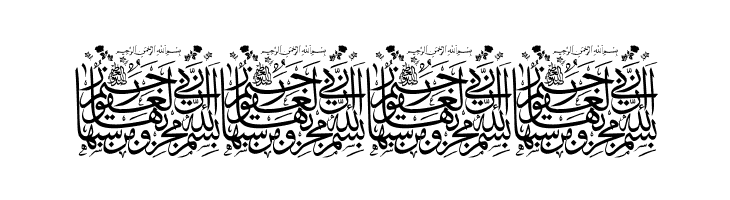 بسم الله الرحمن الرحيم بسم الله الرحمن الرحيم بسم الله الرحمن الرحيم بسم الله الرحمن الرحيم
بسم الله مجريها ومرسيها إن ربي لغفور رحيم بسم الله مجريها ومرسيها إن ربي لغفور رحيم بسم الله مجريها ومرسيها إن ربي لغفور رحيم بسم الله مجريها ومرسيها إن ربي لغفور رحيم